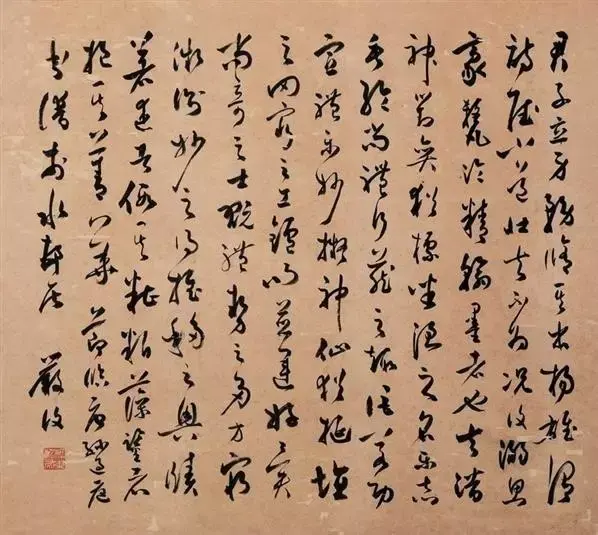 君子立身務脩其本揚雄謂
詩賦小道壯夫不為況復溺思
豪氂淪精翰墨者也夫潛
神對奕猶標坐隱之名樂志
垂綸尚體行藏之趣詎若功
宣禮樂妙擬神仙猶埏埴
之罔窮與工鑪而並運好異
尚奇之士翫體勢之多方窮
微測妙之得推移之奧賾
著述者假其糟粕藻鑒者
挹其菁華 節臨唐孫過庭
書譜 嚴復